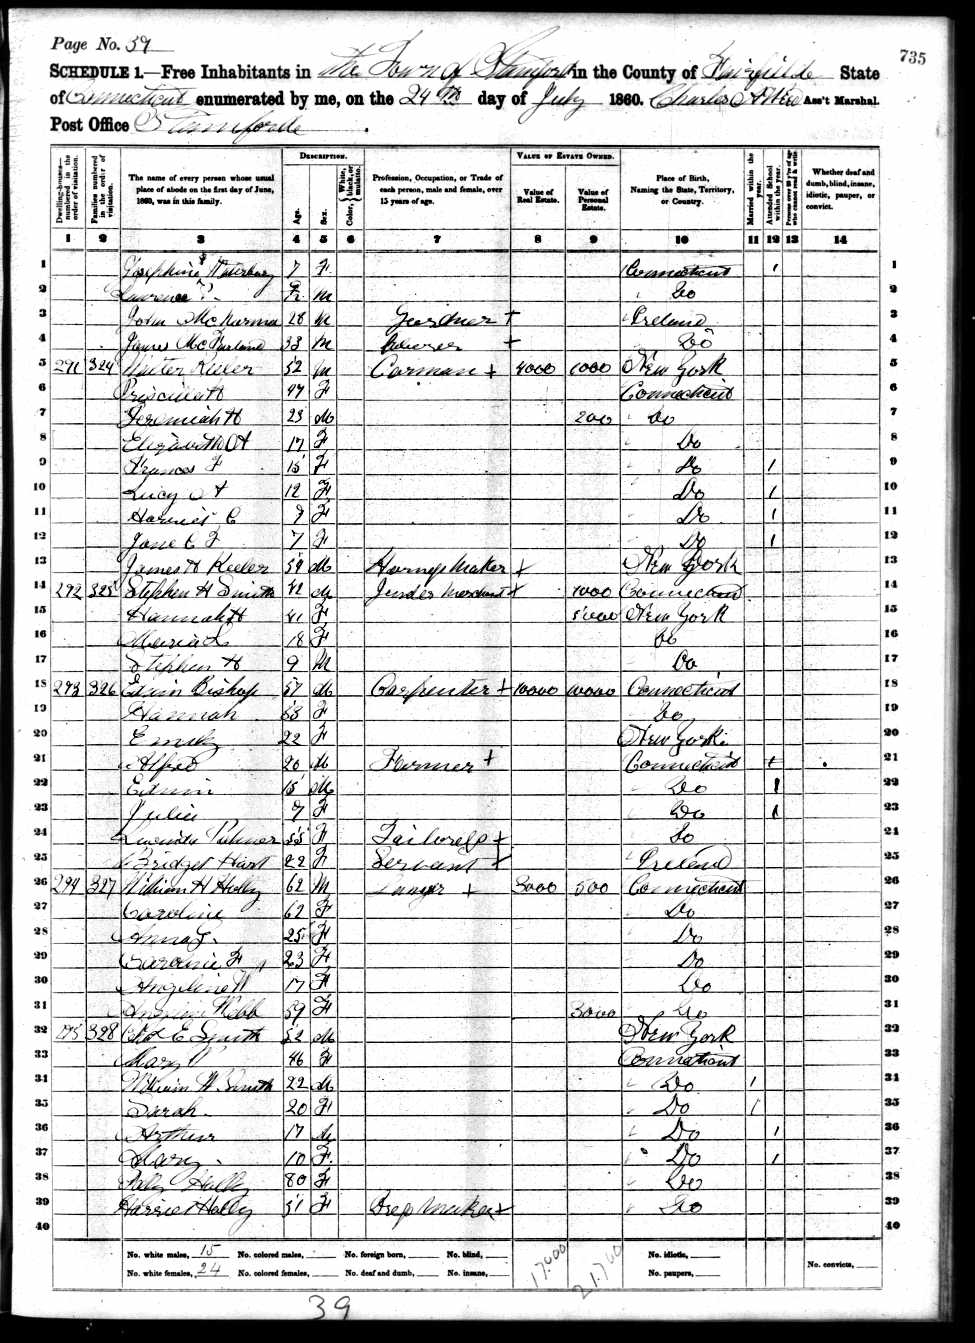 Page No. 59
735
SCHEDULE 1.—Free Inhabitants in the Town of Stamford in the County of Fairfield State
of Connecticut enumerated by me, on the 24th day of July 1860. Charles Ass't Marshal.
Post Office Stamford
Dwelling-houses—numbered in the order of visitation. Families numbered in the order of visitation. The name of every person whose usual place of abode on the first day of June, 1860, was in this family. DESCRIPTION. Age. Sex. Color, White, black, or mulatto. Profession, Occupation, or Trade of each person, male and female, over 15 years of age. VALUE OF ESTATE OWNED. Value of Real Estate. Value of Personal Estate. Place of Birth, Naming the State, Territory, or Country. Married within the year. Attended School within the year. Persons over 20 y'rs of age who cannot read & write. Whether deaf and dumb, blind, insane, idiotic, pauper, or convict.
1 2 3 4 5 6 7 8 9 10 11 12 13 14
1 Josephine Waterbury 7 F Connecticut 1 1
2 Lawrence M Do 2
3 John 28 M Gardner + Ireland 3
4 James McFarland 33 M + Do 4
5 291 324 Walter Keeler 52 M Carman + 4000 1000 New York 5
6 Priscilla H 47 F Connecticut 6
7 Jeremiah H 23 M 200 Do 7
8 Elizabeth A 17 F Do 8
9 Frances F 15 F Do 1 9
10 Lucy A 12 F Do 1 10
11 Harriet C 9 F Do 1 11
12 Jane F 7 F Do 1 12
13 James H Keeler 59 M Harness Maker + New York 13
14 292 325 Stephen H Smith 41 M Merchant + 1000 Connecticut 14
15 Hannah H 41 F 5000 New York 15
16 Maria L 18 F Do 16
17 Stephen H 9 M Do 17
18 293 326 Edwin Bishop 57 M Carpenter + 10000 10000 Connecticut 18
19 Hannah 55 F Do 19
20 Emily 22 F New York 20
21 Alfred 20 M Farmer + Connecticut 1 21
22 Edwin 15 M Do 1 22
23 Julia 7 F Do 1 23
24 Lucinda Palmer 55 F Tailoress + Do 24
25 Bridget Hart 22 F Servant + Ireland 25
26 294 327 William H Holly 62 M Lawyer + 3000 500 Connecticut 26
27 Caroline 62 F Do 27
28 Anna L. 25 F Do 28
29 Caroline F 23 F Do 29
30 Angeline W 17 F Do 30
31 Webb 59 F 3000 Do 31
32 295 328 E Smith 52 M New York 32
33 Mary 46 F Connecticut 33
34 William H. Smith 22 M Do 1 34
35 Sarah 20 F Do 1 35
36 Arthur 17 M Do 1 36
37 Mary 10 F. Do 1 37
38 Holly 80 F Do 38
39 Harriet Holly 51 F Dress Maker + Do 39
40 40
No. white males, 15 No. colored males, No. foreign born, No. blind, 17,000 21,700 No. idiotic,
No. white females, 24 No. colored females, No. deaf and dumb, No. insane, No. paupers, No. convicts,
39